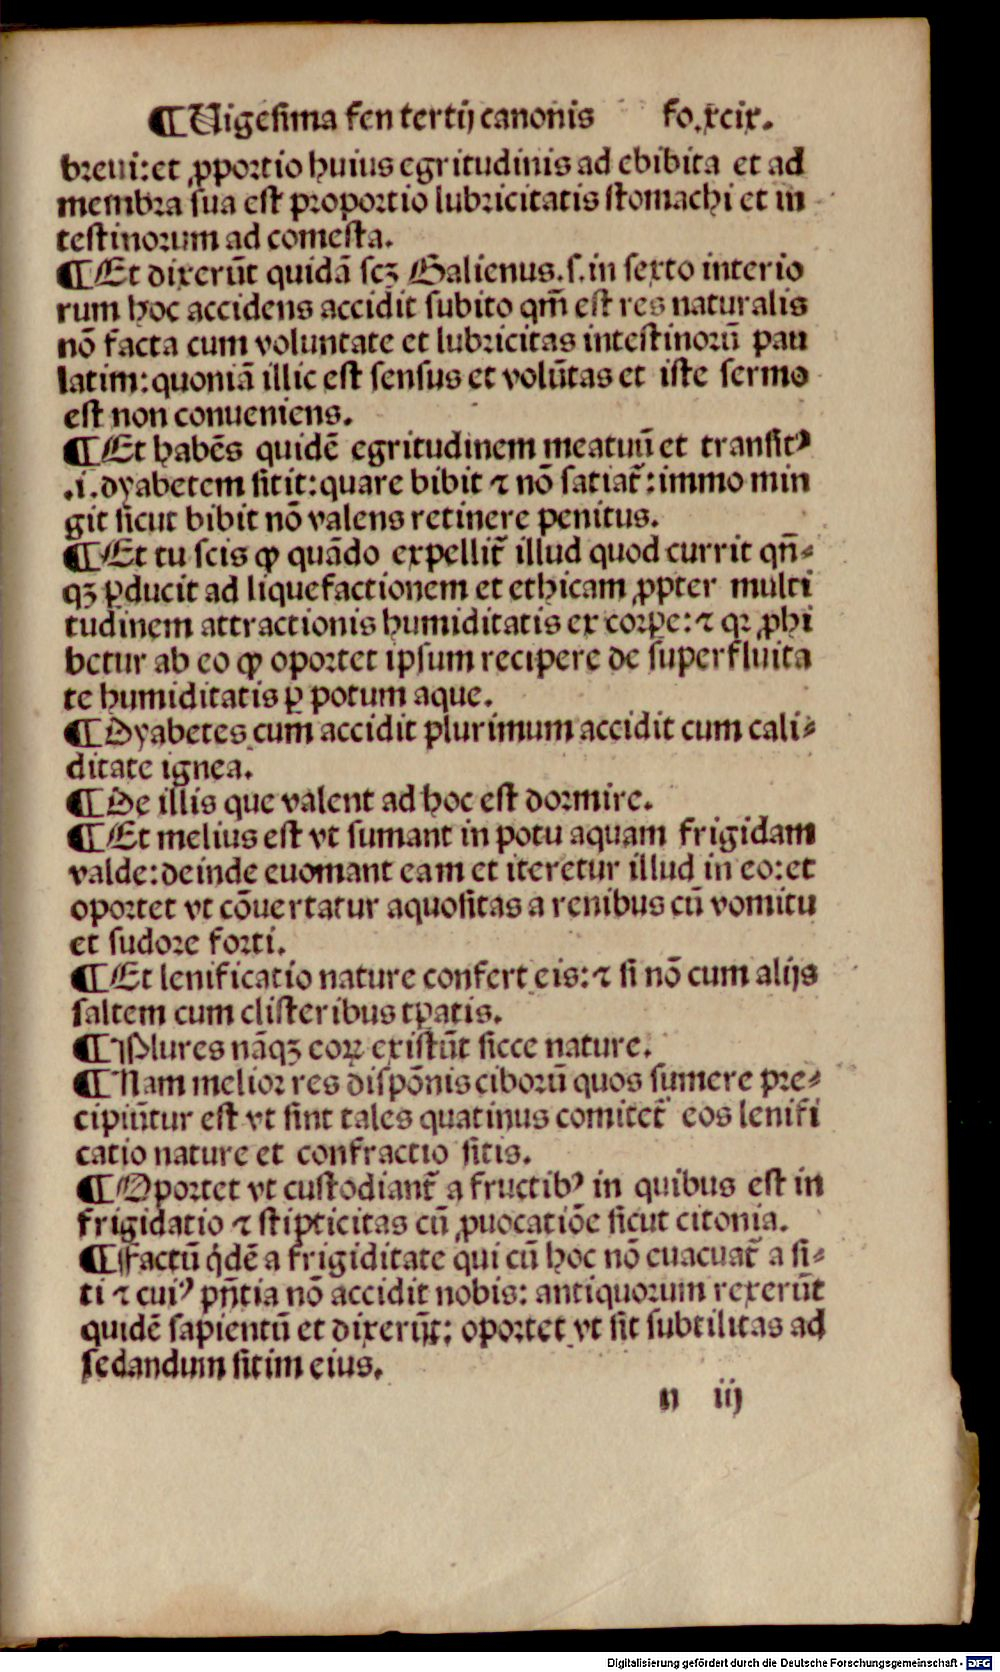 ¶Uigesima fen tertij canonis fo.xcix.
breui:et ꝓportio huius egritudinis ad ebibita et ad
membra sua est proportio lubricitatis stomachi et in
testinorum ad comesta.
¶Et dixerūt quidā scꝫ Galienus.s.in sexto interio
rum hoc accidens accidit subito qm̄ est res naturalis
nō facta cum voluntate et lubricitas intestinorū pau
latim:quoniā illic est sensus et volūtas et iste sermo
est non conueniens.
¶Et habēs quidē egritudinem meatuū et transitꝰ
.i.dyabetem sitit:quare bibit ⁊ nō satiat̃:immo min
git sicut bibit nō valens retinere penitus.
¶Et tu scis ꝙ quādo expellit̃ illud quod currit qn̄⸗
qꝫ ꝑducit ad liquefactionem et ethicam ꝓpter multi
tudinem attractionis humiditatis ex corpe:⁊ qꝛ ꝓhi
betur ab eo ꝙ oportet ipsum recipere de superfluita
te humiditatis ꝑ potum aque.
¶Dyabetes cum accidit plurimum accidit cum cali⸗
ditate ignea.
¶De illis que valent ad hoc est dormire.
¶Et melius est vt sumant in potu aquam frigidam
valde:deinde euomant eam et iteretur illud in eo:et
oportet vt cōuertatur aquositas a renibus cū vomitu
et sudore forti.
¶Et lenificatio nature confert eis:⁊ si nō cum alijs
saltem cum clisteribus tꝑatis.
¶Plures nāqꝫ eoꝝ existūt sicce nature.
¶Nam melior res dispōnis ciborū quos sumere pre⸗
cipiūtur est vt sint tales quatinus comitet̃ eos lenifi
catio nature et confractio sitis.
¶Oportet vt custodiant̃ a fructibꝰ in quibus est in
frigidatio ⁊ stipticitas cū ꝓuocatiōe sicut citonia.
¶Factū qͥdē a frigiditate qui cū hoc nō euacuat̃ a si⸗
ti ⁊ cuiꝰ pn̄tia nō accidit nobis: antiquorum rexerūt
quidē sapientū et dixerūt: oportet vt sit subtilitas ad
sedandum sitim eius.
n iij
Digitalisierung gefördert durch die Deutsche Forschungsgemeinschaft - DFG